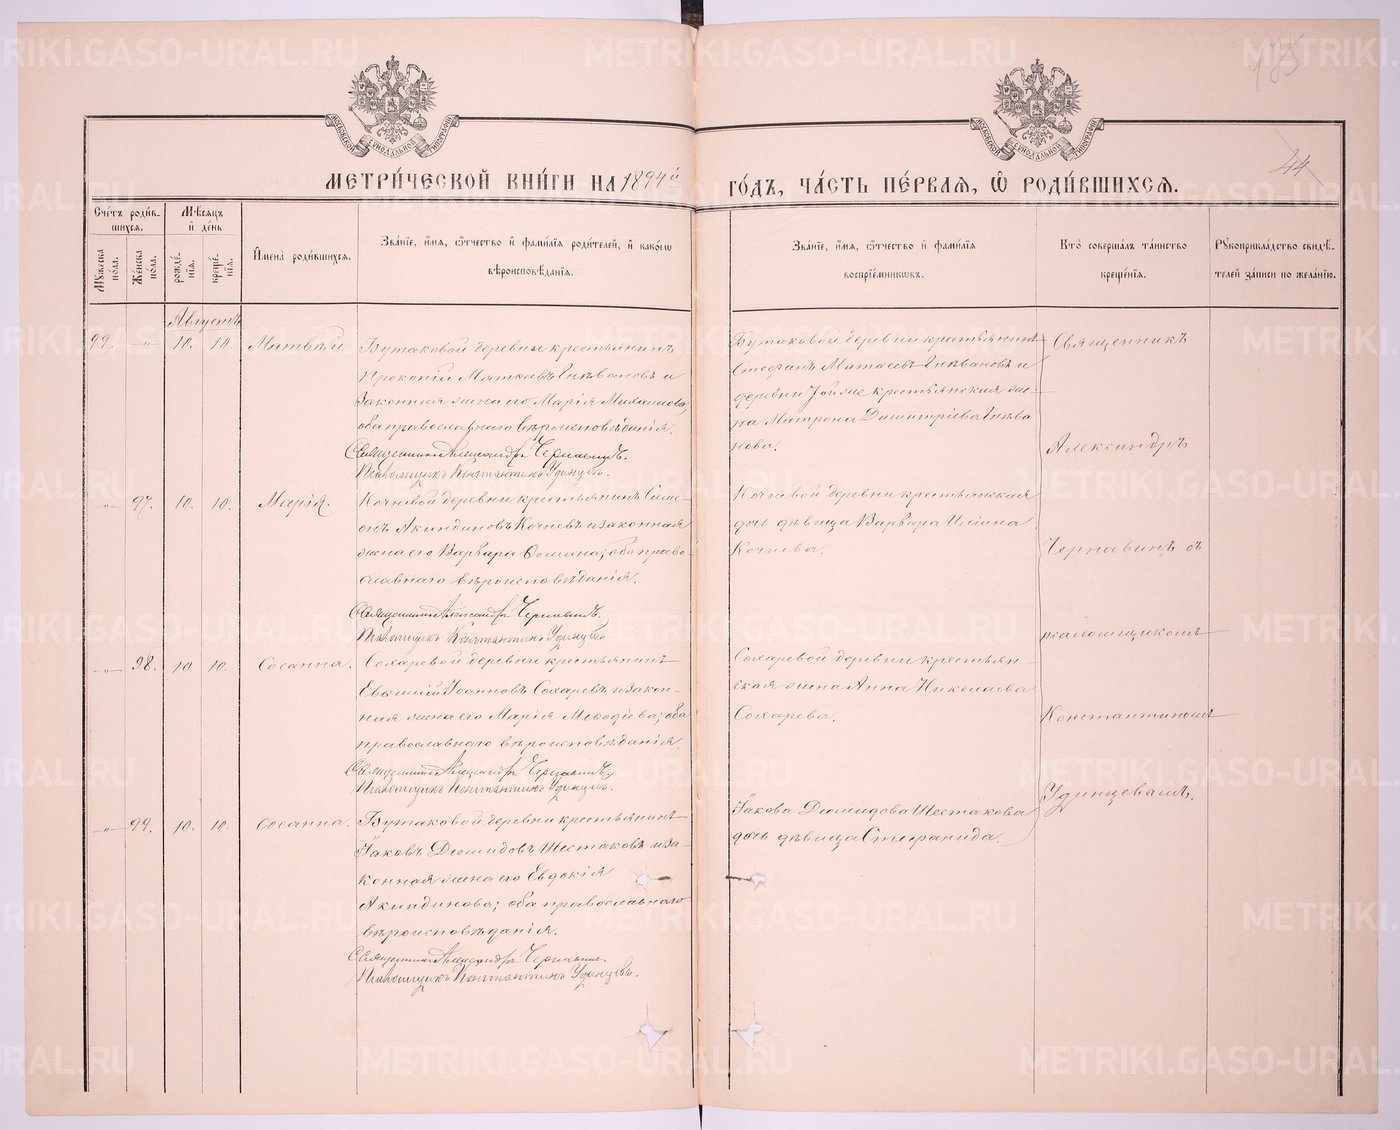 185
44
МОСКОВСКОЙ СѴНОДАЛЬНОЙ ТИПОГРАФІИ
МОСКОВСКОЙ СѴНОДАЛЬНОЙ ТИПОГРАФІИ
МЕТРИ́ЧЕСКОЙ КНИ́ГИ НА 1894й
ГО́ДЪ, ЧА́СТЬ ПЕ́РВАЯ, Ѡ РОДИ́ВШИХСЯ.
Сче́тъ роди́в-
шихся.
Мꙋжеска по́ла.
Же́нска по́ла.
Мѣ́сяцъ
и҆ де́нь
рожде́нїя.
креще́нїя.
И҆мена̀ роди́вшихся.
Зва́нїе, и҆́мя, ѻ҆́тчество и҆ фами́лїя роди́телей, и҆ како́гѡ
вѣроисповѣ́данїя.
Зва́нїе, и҆́мя, ѻ҆́тчество и҆ фами́лїя
воспрїе́мникѡвъ.
Кто̀ соверша́лъ та́инство
креще́нїя.
Рꙋкоприкла́дство свидѣ́-
телей за́писи по жела́нїю.
Августъ
99. „ 10. 10. Матвѣй
Бутаковой деревни крестьянинъ
Прокопій Матѳеевъ Енѣвановъ и
законная жена его Марія Михаилова,
оба православнаго вѣроисповѣданія.
Священникъ Александръ Чернавинъ.
Псаломщикъ Константинъ Удинцевъ.
Бутаковой деревни крестьянинъ
Стефанъ Матѳеевъ Енѣвановъ и
деревни Тойже крестьянская же-
на Матрона Димитріева Енѣва
нова.
„ 97. 10. 10. Марія.
Кочневой деревни крестьянинъ Симе-
онъ Акиндиновъ Кочневъ и законная
жена его Варвара Ѳомина; оба право-
славнаго вѣроисповѣданія.
Священникъ Александръ Чернавинъ.
Псаломщикъ Константинъ Удинцевъ.
Кочневой деревни крестьянская
дочь дѣвица Варвара Иліина
Кочнева.
„ 98. 10. 10. Сосанна.
Сохаревой деревни крестьянинъ
Евѳимій Іоанновъ Сохаревъ и закон-
ная жена его Марія Меѳодіева; оба
православнаго вѣроисповѣданія.
Священникъ Александръ Чернавинъ.
Псаломщикъ Константинъ Удинцевъ.
Сохаревой деревни крестьян-
ская жена Анна Николаева
Сохарева.
„ 99. 10. 10. Сосанна.
Бутаковой деревни крестьянинъ
Іаковъ Діомидовъ Шестаковъ и за-
конная жена его Евдокія
Акиндинова; оба православнаго
вѣроисповѣданія.
Священникъ Александръ Чернавинъ.
Псаломщикъ Константинъ Удинцевъ.
Іакова Діомидова Шестакова
дочь дѣвица Стефанида.
Священникъ
Александръ
Чернавинъ съ
псаломщикомъ
Константиномъ
Удинцевымъ.
METRIKI.GASO-URAL.RU